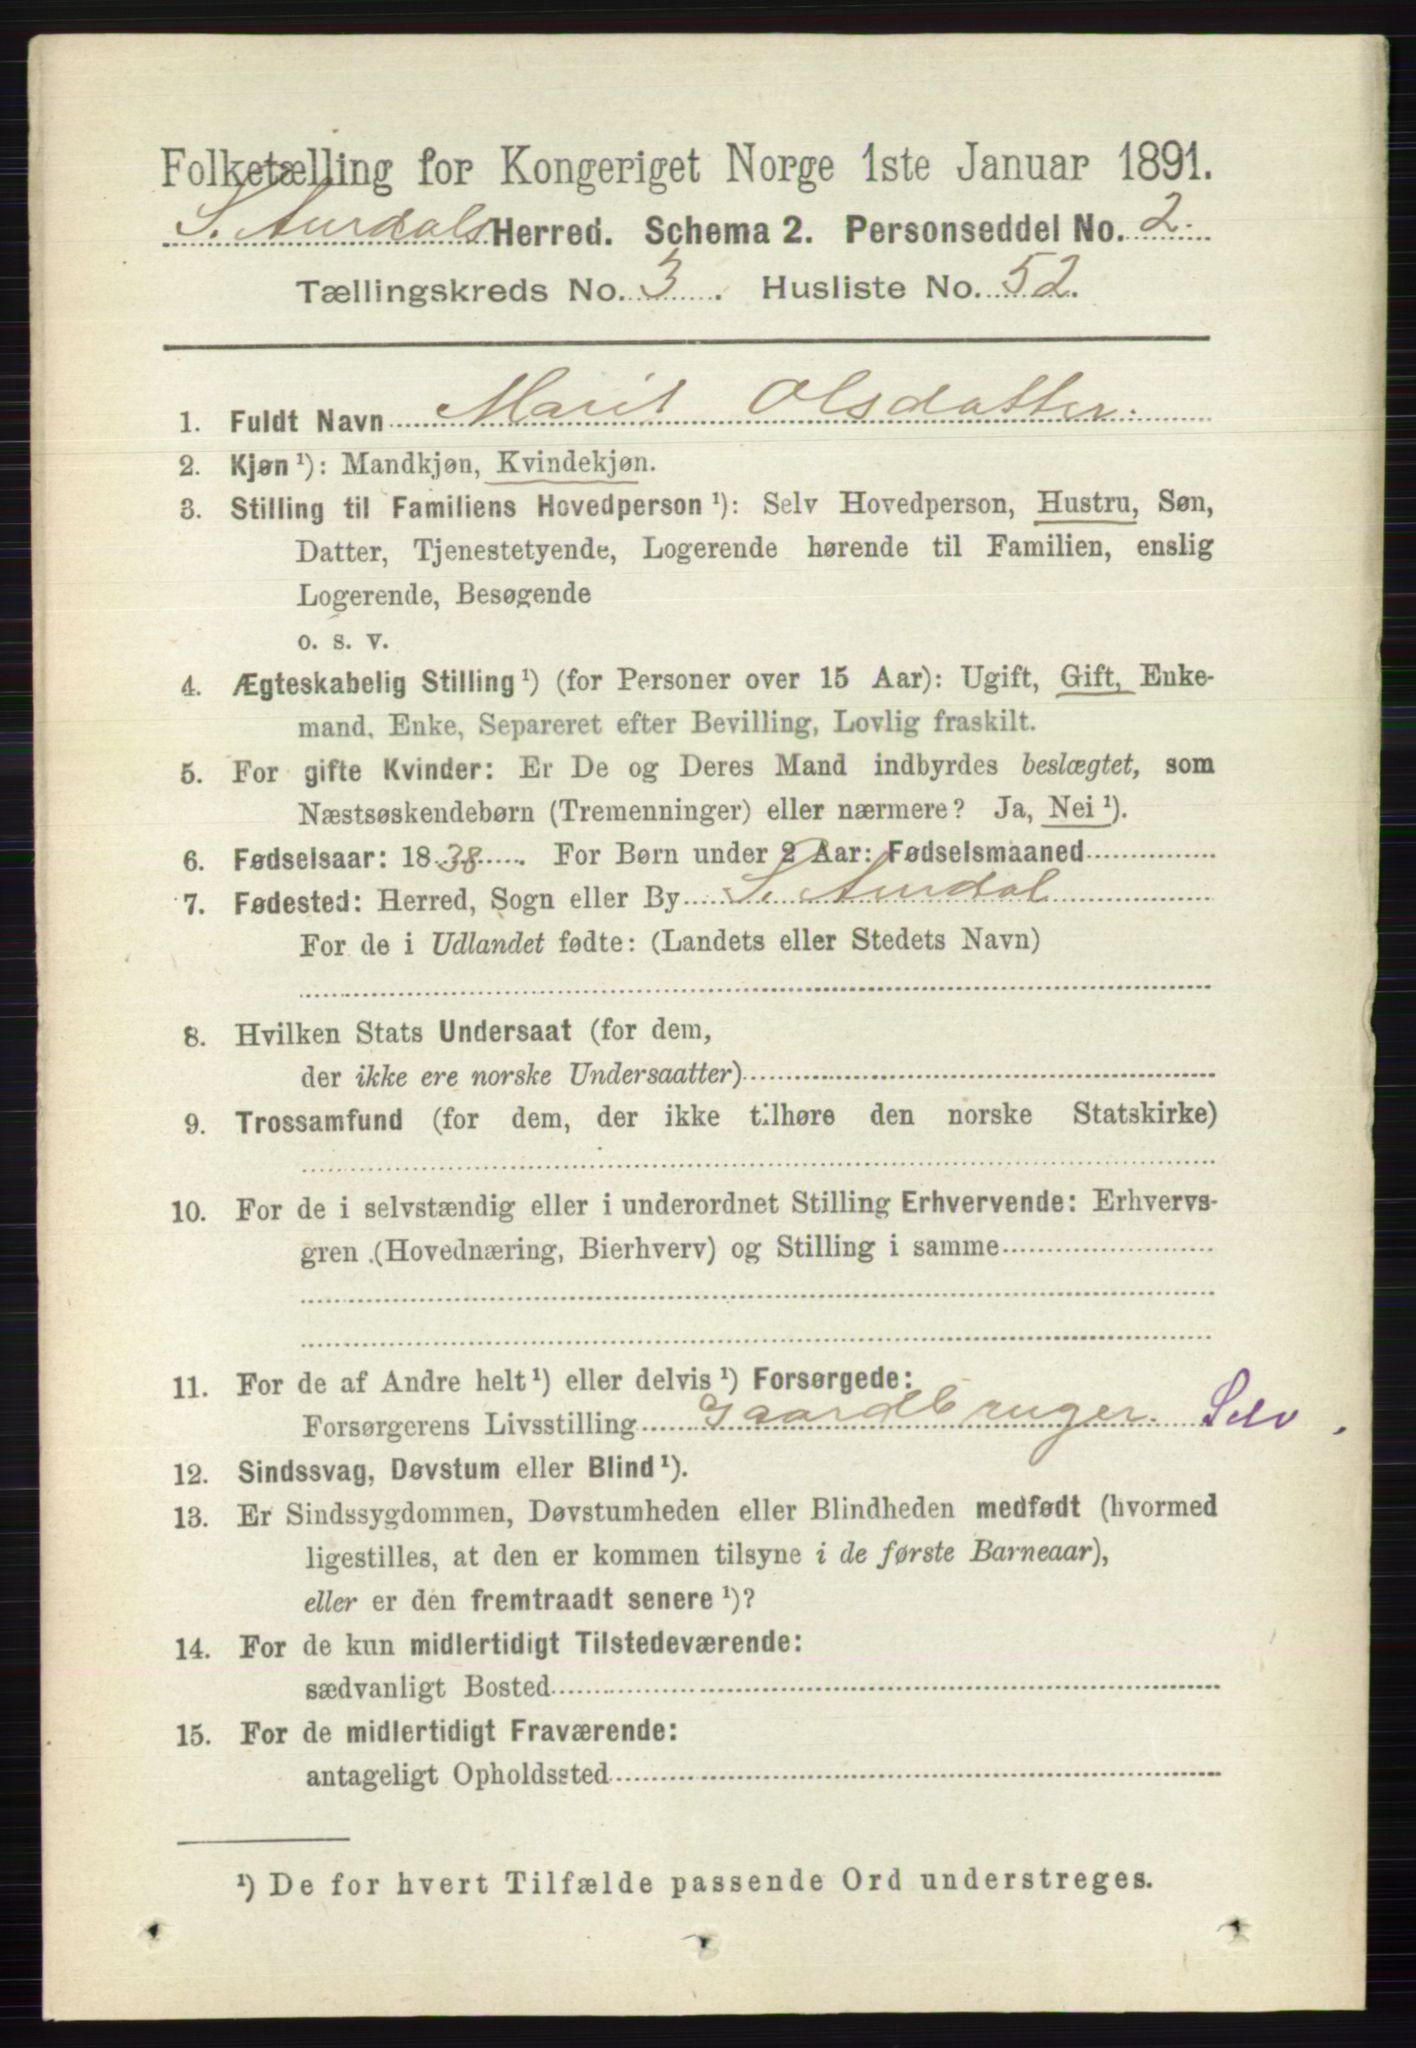 Folketælling for Kongeriget Norge 1ste Januar 1891.
S. Aurdals Herred. Schema 2. Personseddel No. 2.
Tællingskreds No. 3. Husliste No. 52.
1. Fuldt Navn Marit Olsdatter.
2. Kjøn ¹): Mandkjøn, Kvindekjøn.
3. Stilling til Familiens Hovedperson ¹): Selv Hovedperson, Hustru, Søn,
Datter, Tjenestetyende, Logerende hørende til Familien, enslig
Logerende, Besøgende
o. s. v.
4. Ægteskabelig Stilling ¹) (for Personer over 15 Aar): Ugift, Gift, Enke-
mand, Enke, Separeret efter Bevilling, Lovlig fraskilt.
5. For gifte Kvinder: Er De og Deres Mand indbyrdes beslægtet, som
Næstsøskendebørn (Tremenninger) eller nærmere? Ja, Nei ¹).
6. Fødselsaar: 1838. For Børn under 2 Aar: Fødselsmaaned
7. Fødested: Herred, Sogn eller By S. Aurdal
For de i Udlandet fødte: (Landets eller Stedets Navn)
8. Hvilken Stats Undersaat (for dem,
der ikke ere norske Undersaatter)
9. Trossamfund (for dem, der ikke tilhøre den norske Statskirke)
10. For de i selvstændig eller i underordnet Stilling Erhvervende: Erhvervs-
gren (Hovednæring, Bierhverv) og Stilling i samme
11. For de af Andre helt ¹) eller delvis ¹) Forsørgede:
Forsørgerens Livsstilling Gaardbruger. Selv
12. Sindssvag, Døvstum eller Blind ¹).
13. Er Sindssygdommen, Døvstumheden eller Blindheden medfødt (hvormed
ligestilles, at den er kommen tilsyne i de første Barneaar),
eller er den fremtraadt senere ¹)?
14. For de kun midlertidigt Tilstedeværende:
sædvanligt Bosted
15. For de midlertidigt Fraværende:
antageligt Opholdssted
¹) De for hvert Tilfælde passende Ord understreges.